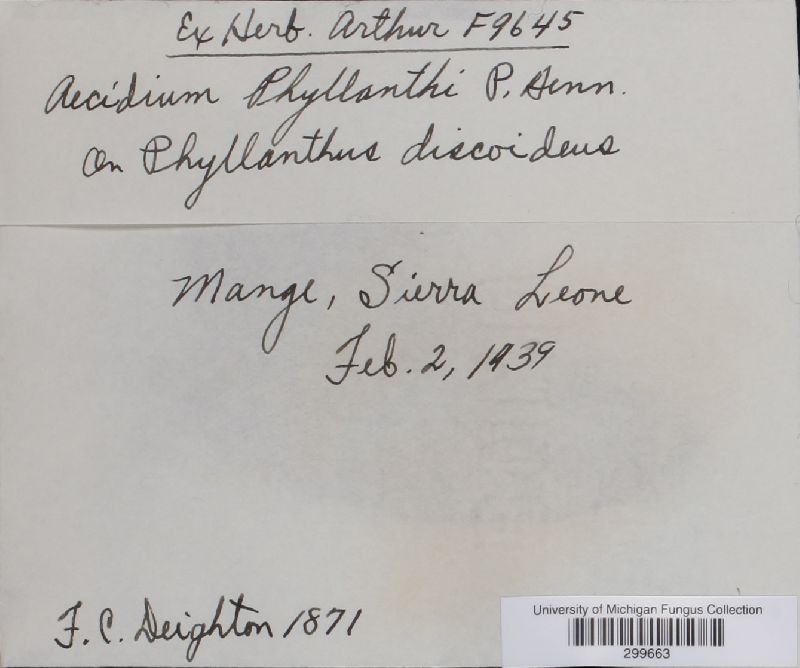 Ex Herb. Arthur F9645
Aecidium Phyllanthi P. Henn.
On Phyllanthus discoideus
Mange, Sierra Leone
Feb. 2, 1939
F. C. Deighton 1871
University of Michigan Fungus Collection
299663